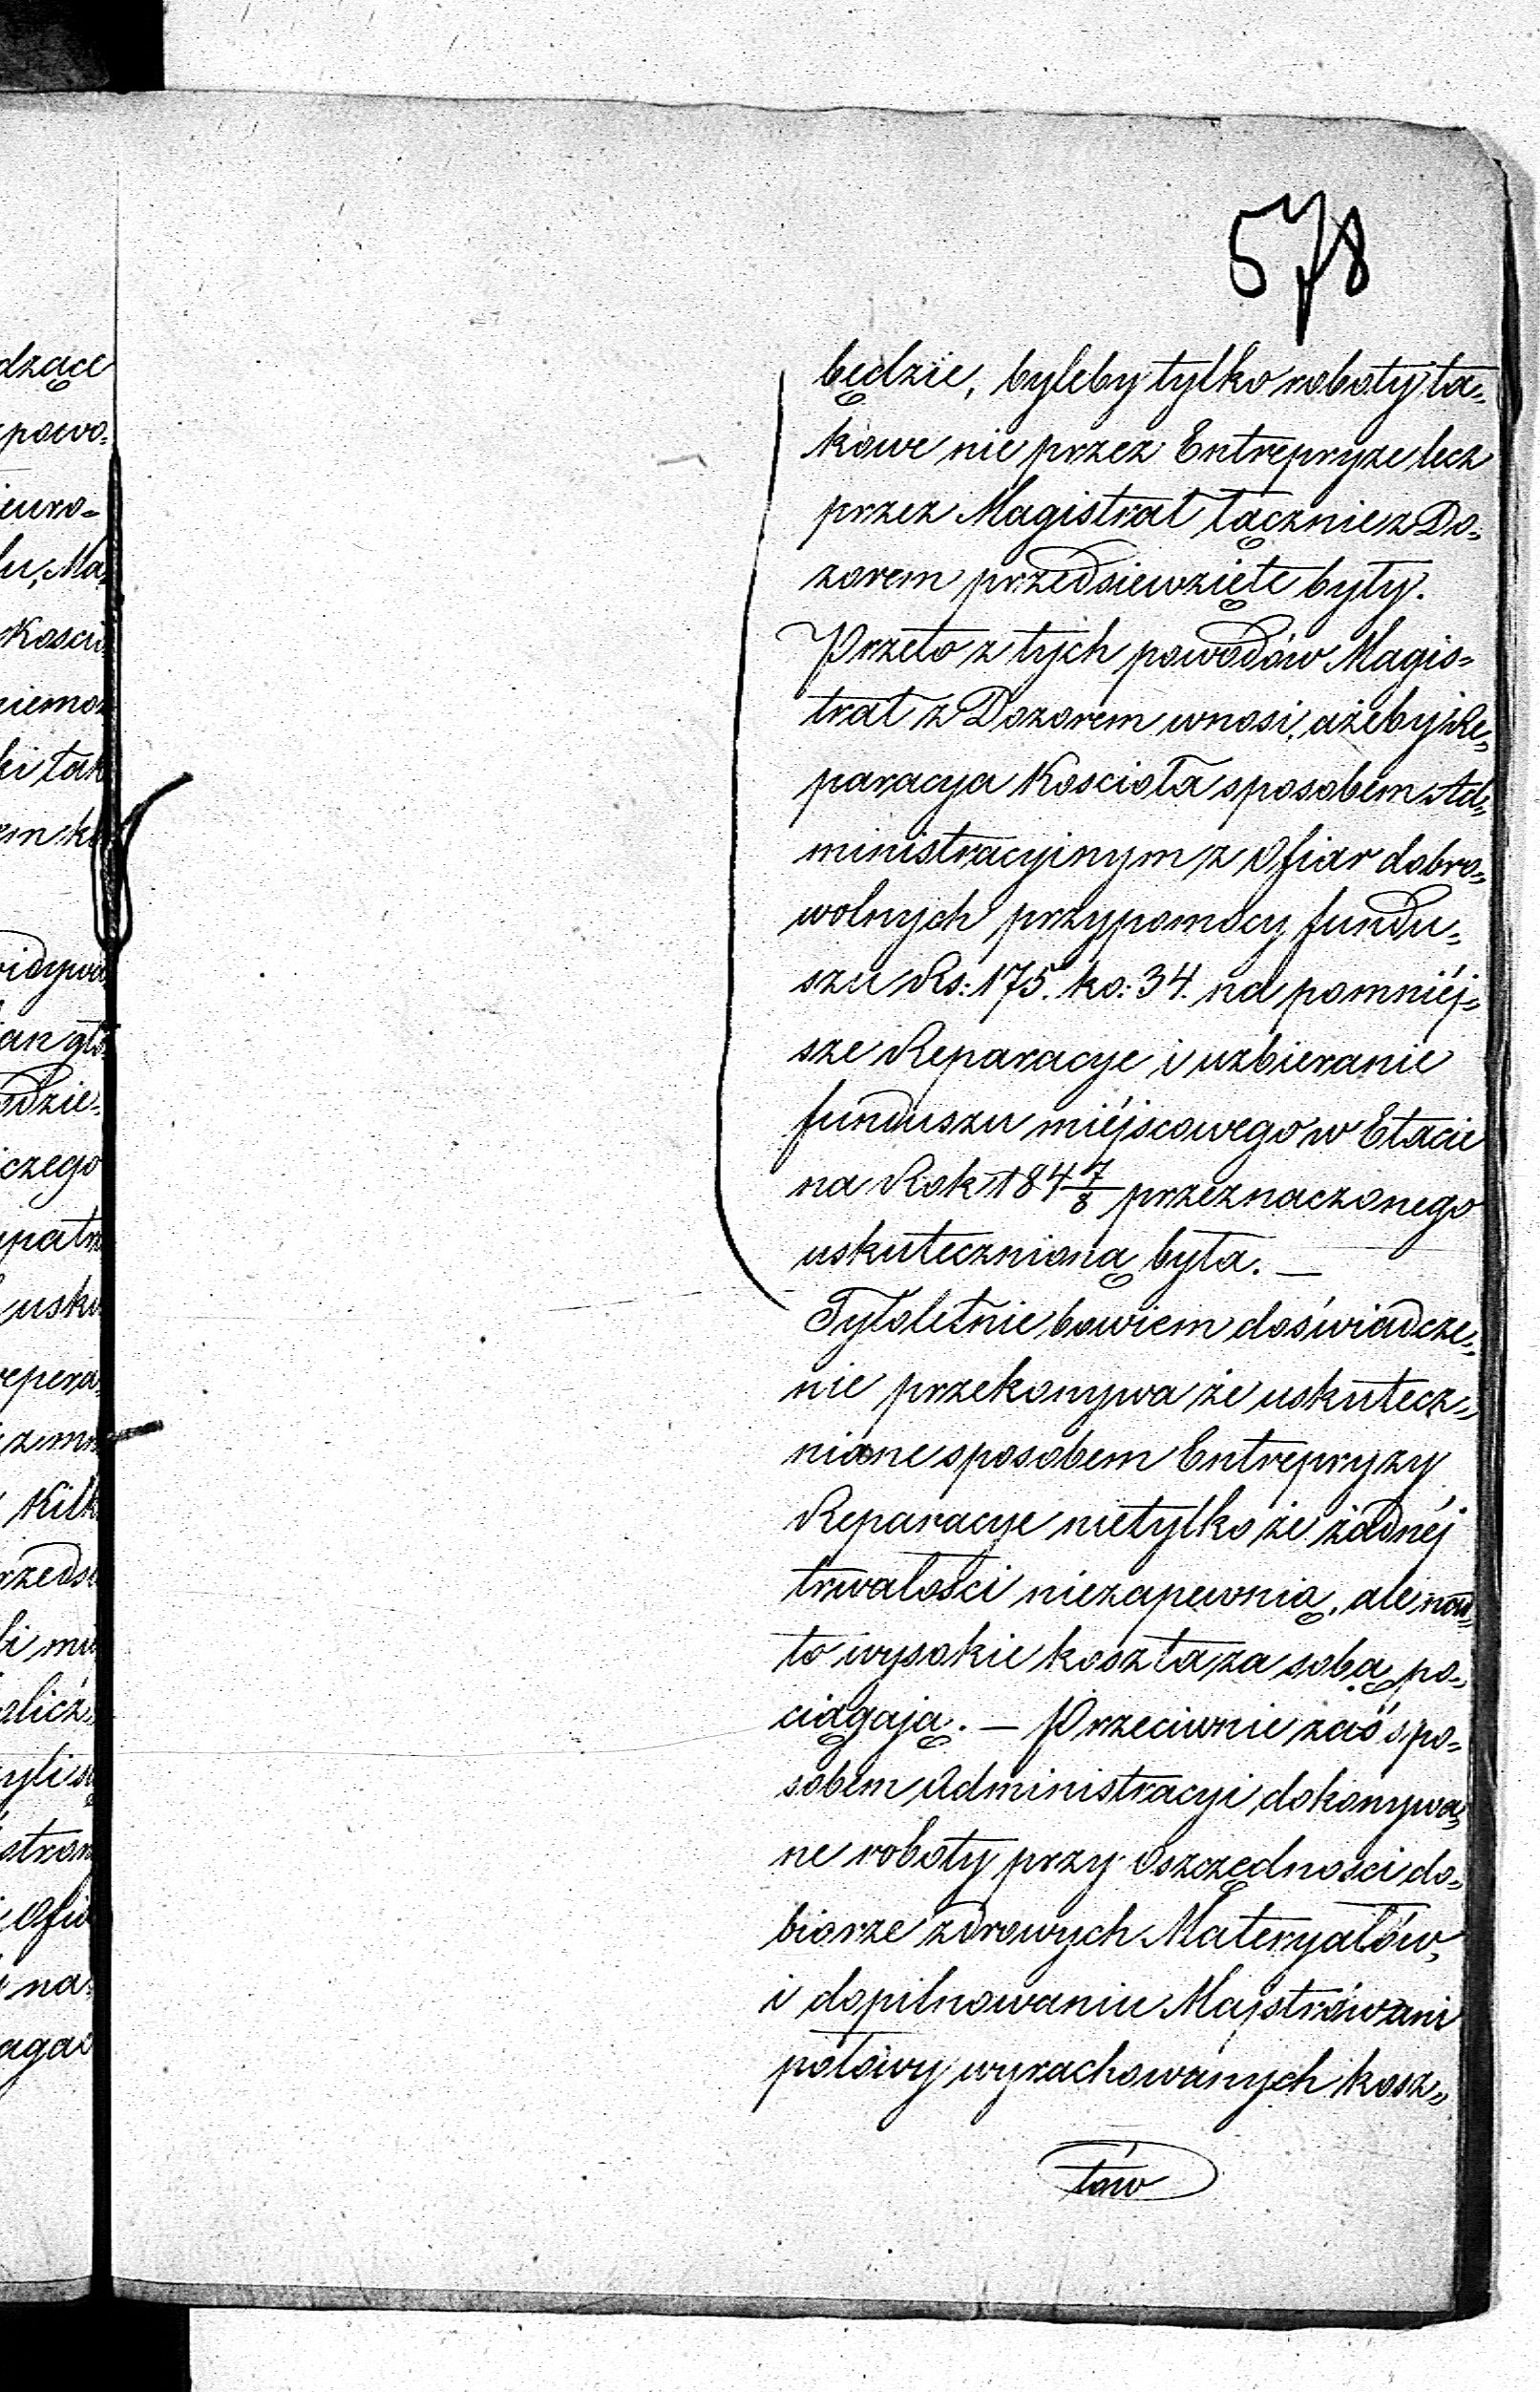 578
będzie, byleby tylko roboty ta„
kowe nie przez Entrepryze lecz
przez Magistrat łącznie z Do„
zorem przedsiewzięte były.
Przeto z tych powodów Magis=
trat z Dozorem wnosi, ażeby Re„
paracya Kościoła sposobem Ad„
ministracyjnym z Ofiar dobro„
wolnych przypomocy fundu„
szu Rs: 175. ko: 34. na pomniéj„
sze Reparacye i uzbieranie
funduszu miéjscowego w Etacie
na Rok 184 7/8 przeznaczonego
uskutecznioną była. —
Tyloletnie bowiem doświadcze„
nie przekonywa że uskutecz„
nione sposobem Entrepryzy
Reparacye nietylko że żadnéj
trwałości niezapewnią, ale nad„
to wysokie koszta za sobą po„
ciągają. — Przeciwnie zaś spo„
sobem Administracyi dokonywa„
ne roboty przy Oszczędności do„
biorze zdrowych Materyałów,
i dopilnowaniu Majstrów ani
połowy wyrachowanych kosz„
tów
dzące
powo„
euro=
lu, Ma„
Kości
niemoż
ki tak
em k
widywa
an głó
odzie„
czego
patrz
usku
repera„
zmu
Kilk
rzeds
bi mu
olicz„
yli są
stron
Ofia
na„
agac